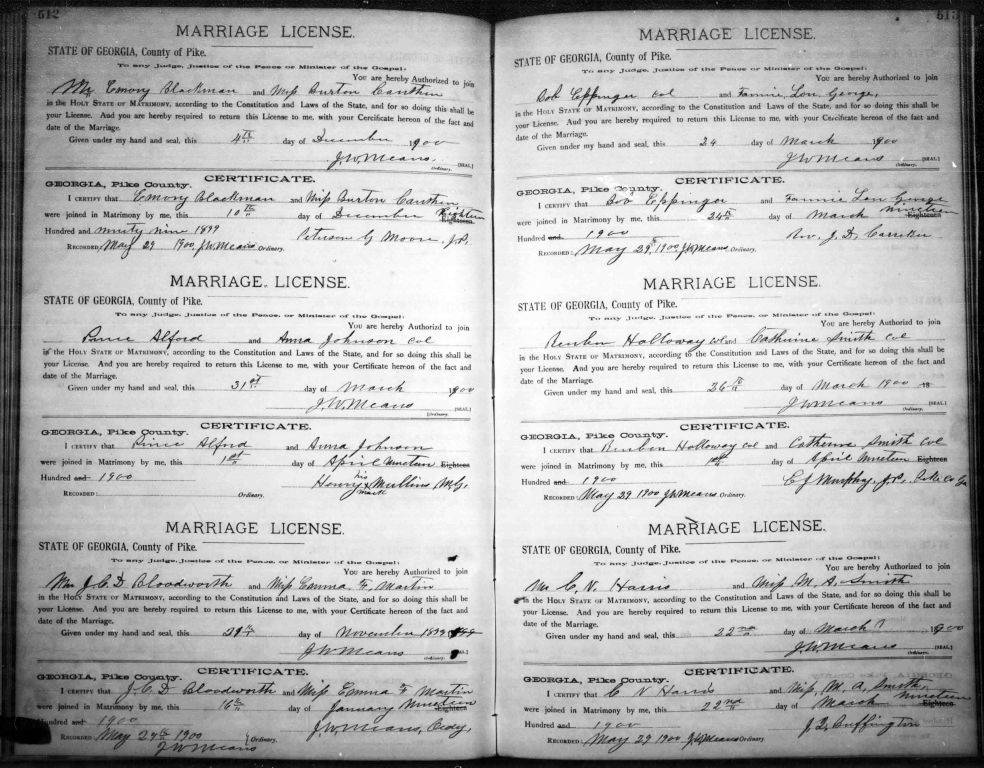 512
MARRIAGE LICENSE.
STATE OF GEORGIA, County of Pike.
To any Judge, Justice of the Peace or Minister of the Gospel:
You are hereby Authorized to join
Mr Emory Blackman and Miss Burton Cauthen
in the HOLY STATE OF MATRIMONY, according to the Constitution and Laws of the State, and for so doing this shall be
your License. And you are hereby required to return this License to me, with your Certificate hereon of the fact and
date of the Marriage.
Given under my hand and seal, this 4th day of December 1900
J.W. Means. [SEAL]
Ordinary.
CERTIFICATE.
GEORGIA, Pike County.
I CERTIFY that Emory Blackman and Miss Burton Cauthen
were joined in Matrimony by me, this 10th day of December Eighteen Eighteen
Hundred and ninety nine 1899
Peterson G Moore, J.P.
RECORDED May 29 1900, J.W. Means Ordinary.
MARRIAGE LICENSE.
STATE OF GEORGIA, County of Pike.
To any Judge, Justice of the Peace, or Minister of the Gospel:
You are hereby Authorized to join
Alford and Anna Johnson col
in the HOLY STATE OF MATRIMONY, according to the Constitution and Laws of the State, and for so doing this shall be
your License. And you are hereby required to return this License to me, with your Certificate hereon of the fact and
date of the Marriage.
Given under my hand and seal, this 31st day of March 1900
J.W. Means [SEAL]
Ordinary.
CERTIFICATE.
GEORGIA, Pike County.
I CERTIFY that Alford and Anna Johnson
were joined in Matrimony by me, this 1st day of April Nineteen Eighteen
Hundred and 1900
Henry his x mark Mullins M.G.
RECORDED: Ordinary.
MARRIAGE LICENSE.
STATE OF GEORGIA, County of Pike.
To any Judge, Justice of the Peace or Minister of the Gospel:
You are hereby Authorized to join
Mr J. C. D Bloodworth and Miss Emma F. Martin
in the HOLY STATE OF MATRIMONY, according to the Constitution and Laws of the State, and for so doing this shall be
your License. And you are hereby required to return this License to me, with your Certificate hereon of the fact and
date of the Marriage.
Given under my hand and seal, this 29th day of November 1899
J.W. Means
Ordinary.
CERTIFICATE.
GEORGIA, Pike County.
I CERTIFY that J. C. D Bloodworth and Miss Emma F Martin
were joined in Matrimony by me, this 16th day of January Nineteen Eighteen
Hundred and 1900
J.W. Means, Ordy,
RECORDED: May 24th 1900
J.W. Means Ordinary.
513
MARRIAGE LICENSE.
STATE OF GEORGIA, County of Pike.
To any Judge, Justice of the Peace or Minister of the Gospel:
You are hereby Authorized to join
Bob Eppinger col and Fannie Lou George,
in the HOLY STATE OF MATRIMONY, according to the Constitution and Laws of the State, and for so doing this shall be
your License. And you are hereby required to return this License to me, with your Certificate hereon of the fact and
date of the Marriage.
Given under my hand and seal, this 24 day of March 1900
J.W. Means [SEAL]
Ordinary.
CERTIFICATE.
GEORGIA, Pike County.
I CERTIFY that Bob Eppinger and Fannie Lou George
were joined in Matrimony by me, this 24th day of March nineteen Eighteen
Hundred and 1900
Rev. J. D.
RECORDED: May 29th 1900, J.W. Means Ordinary.
MARRIAGE LICENSE.
STATE OF GEORGIA, County of Pike.
To any Judge, Justice of the Peace or Minister of the Gospel:
You are hereby Authorized to join
Reuben Holloway col and Catherine Smith col
in the HOLY STATE OF MATRIMONY, according to the Constitution and Laws of the State, and for so doing this shall be
your License. And you are hereby required to return this License to me, with your Certificate hereon of the fact and
date of the Marriage.
Given under my hand and seal, this 26th day of March 1900 18
J.W. Means [SEAL]
Ordinary.
CERTIFICATE.
GEORGIA, Pike County.
I CERTIFY that Reuben Holloway col and Catherine Smith col
were joined in Matrimony by me, this 1st day of April Nineteen Eighteen
Hundred and 1900
C J Murphy, J.P. Pike Co Ga
RECORDED May 29 1900 J.W. Means Ordinary.
MARRIAGE LICENSE.
STATE OF GEORGIA, County of Pike.
To any Judge, Justice of the Peace or Minister of the Gospel:
You are hereby Authorized to join
Mr C. V. Harris and Miss M. A. Smith
in the HOLY STATE OF MATRIMONY, according to the Constitution and Laws of the State, and for so doing this shall be
your License. And you are hereby required to return this License to me, with your Certificate hereon of the fact and
date of the Marriage.
Given under my hand and seal, this 22nd day of March 1900
J.W. Means [SEAL]
Ordinary.
CERTIFICATE.
GEORGIA, Pike County.
I CERTIFY that C V Harris and Miss, M. A, Smith,
were joined in Matrimony by me, this 22nd day of March nineteen Eighteen
Hundred and 1900
J. Q. Buffington
RECORDED: May 29 1900 J.W. Means Ordinary.